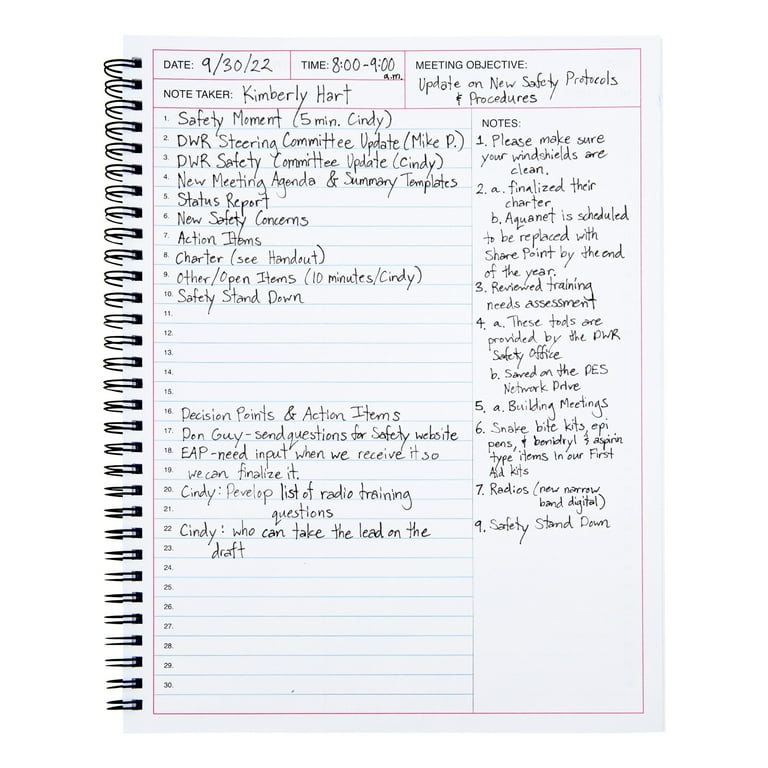 DATE: 9/30/22 TIME: 8:00-9:00 a.m. MEETING OBJECTIVE:
Update on New Safety Protocols
& Procedures
NOTE TAKER: Kimberly Hart
1. Safety Moment (5 min. Cindy)
2. DWR Steering Committee Update (Mike P.)
3. DWR Safety Committee Update (Cindy)
4. New Meeting Agenda & Summary Templates
5. Status Report
6. New Safety Concerns
7. Action Items
8. Charter (see Handout)
9. Other/Open Items (10 minutes/Cindy)
10. Safety Stand Down
11.
12.
13.
14.
15.
16. Decision Points & Action Items
17. Don Guy-send questions for Safety website
18. EAP-need input when we receive it so
19. we can finalize it.
20. Cindy: Develop list of radio training
21. questions
22. Cindy: who can take the lead on the
23. draft
24.
25.
26.
27.
28.
29.
30.
NOTES:
1. Please make sure
your windshields are
clean.
2. a. finalized their
charter
b. Aquanet is scheduled
to be replaced with
Share Point by the end
of the year.
3. Reviewed training
needs assessment
4. a. These tools are
provided by the DWR
Safety Office
b. Saved on the DES
Network Drive
5. a. Building Meetings
6. Snake bite kits, epi
pens, & benidryl & aspirin
type items in our First
Aid kits
7. Radios (new narrow
band digital)
9. Safety Stand Down